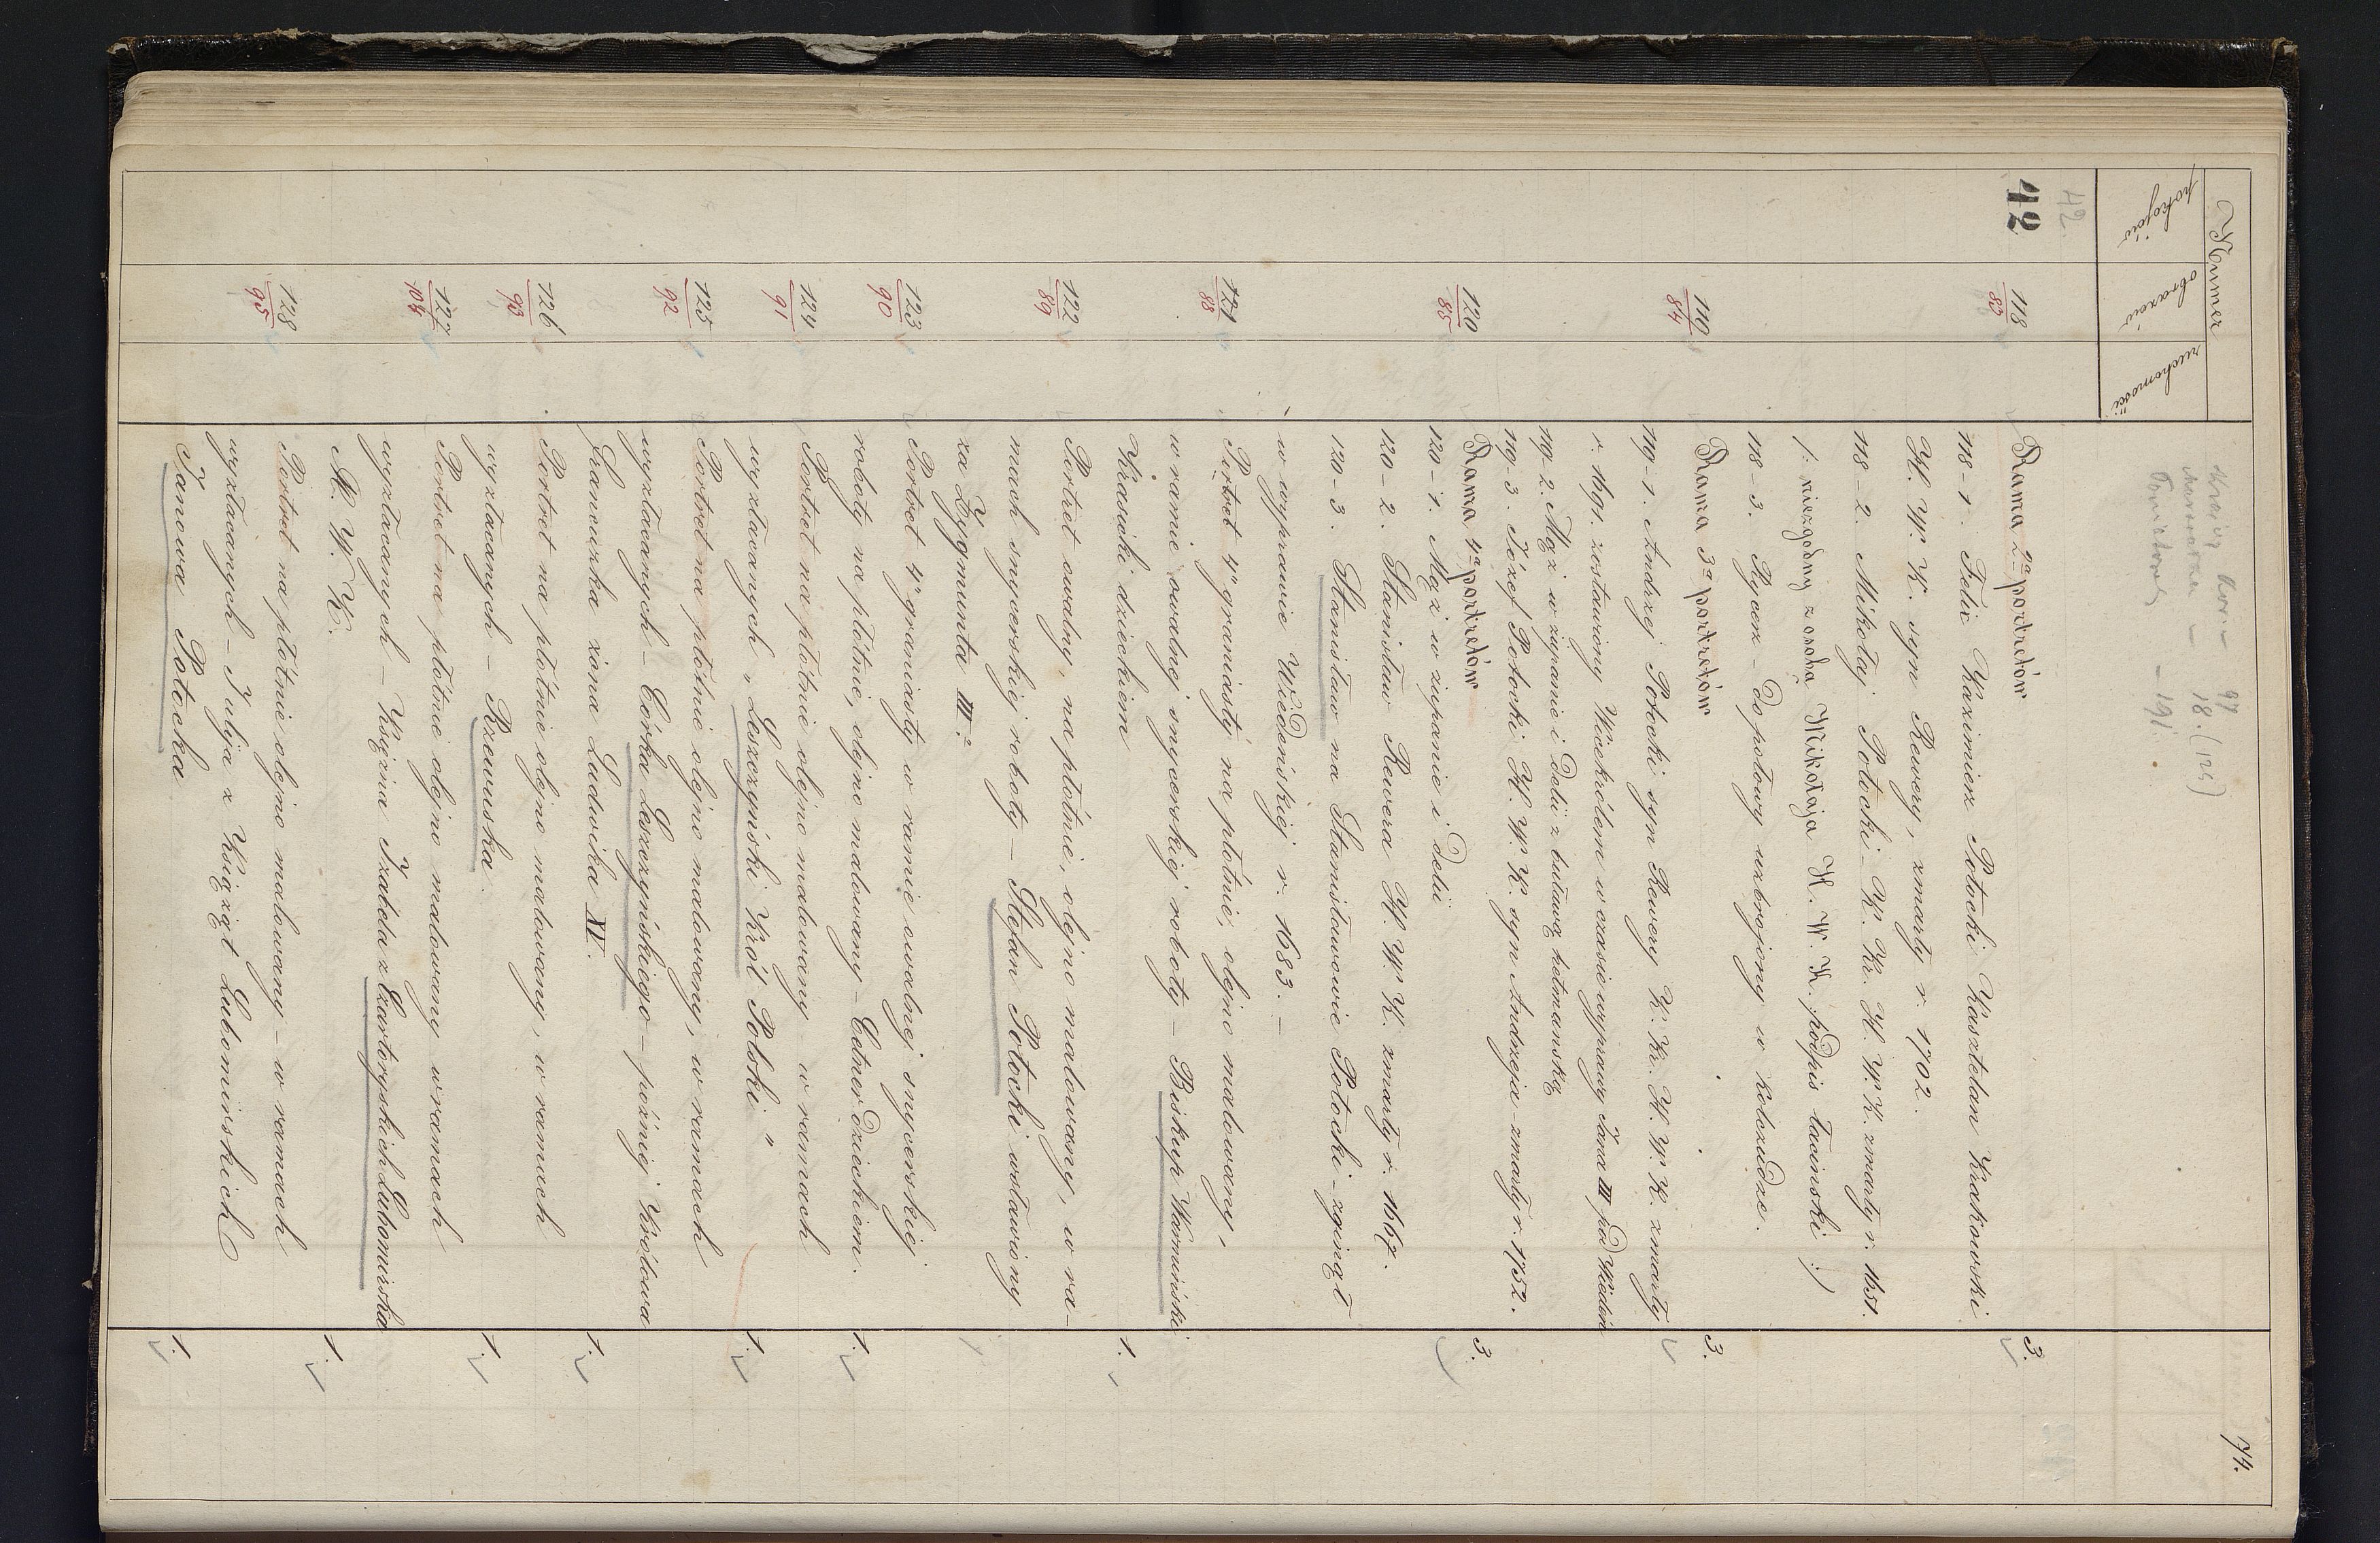 74.
Numer
pokojów
obrazów
ruchomości
97
18. (125)
– 191.
42.
42
118
83
Rama 2ª portretów
3.
118 – 1. Felix Kazimierz Potocki Kasztelan Krakowski
H. W. K. syn Rewery, zmarły r. 1702.
118 – 2. Mikołaj Potocki – K. Kr. H. W. K. zmarły r. 1651.
/: niezgodny z osobą Mikołaja H. W. K. podpis łaciński :/
118 – 3. Rycerz – do połowy uzbrojony w kolczudze.
119
84
Rama 3ª portretów
3.
119 – 1. Andrzej Potocki syn Rewery K. Kr. H. W. K. zmarły
r. 1691. zostawiony Wicekrólem w czasie wyprawy Jana III pod Wiedeń
119 – 2. Mąż w żupanie i delii z buławą hetmańską
119 – 3. Józef Potocki H. W. K. syn Andrzeja – zmarły r. 1752.
120
85
Rama 4ª portretów
3.
120 – 1. Mąż w żupanie i delii
120 – 2. Stanisław Rewera H. W. K. zmarły r. 1667.
120 – 3. Stanisław na Stanisławowie Potocki – zginął
w wyprawie Wiedeńskiej r. 1683. –
121
88
Portret 4º graniasty na płótnie, olejno malowany,
w ramie owalnej snycerskiej roboty – Biskup Warmiński
Krasicki dzieckiem
1.
122
89
Portret owalny, na płótnie, olejno malowany, w ra-
mach snycerskiej roboty – Stefan Potocki wsławiony
za Zygmunta III.?
123
90
Portret 4º graniasty w ramie owalnej snycerskiej
roboty na płótnie, olejno malowany – Cetner dzieckiem.
1.
124
91
Portret na płótnie olejno malowany – w ramach
wyzłacanych „Leszczyński Król Polski"
1.
125
92
Portret na płótnie olejno malowany, w ramach
wyzłacanych – Córka Leszczyńskiego – późniéj Królowa
Francuzka żona Ludwika XV.
1.
126
93
Portret na płótnie olejno malowany, w ramach
wyzłacanych – Rzewuska.
1.
127
104
Portret na płótnie olejno malowany w ramach
wyzłacanych – Księżna Izabela z Czartoryskich Lubomirska
M. W. K.
1.
128
95
Portret na płótnie olejno malowany – w ramach
wyzłacanych – Julija z Książąt Lubomirskich
Janowa Potocka
1.